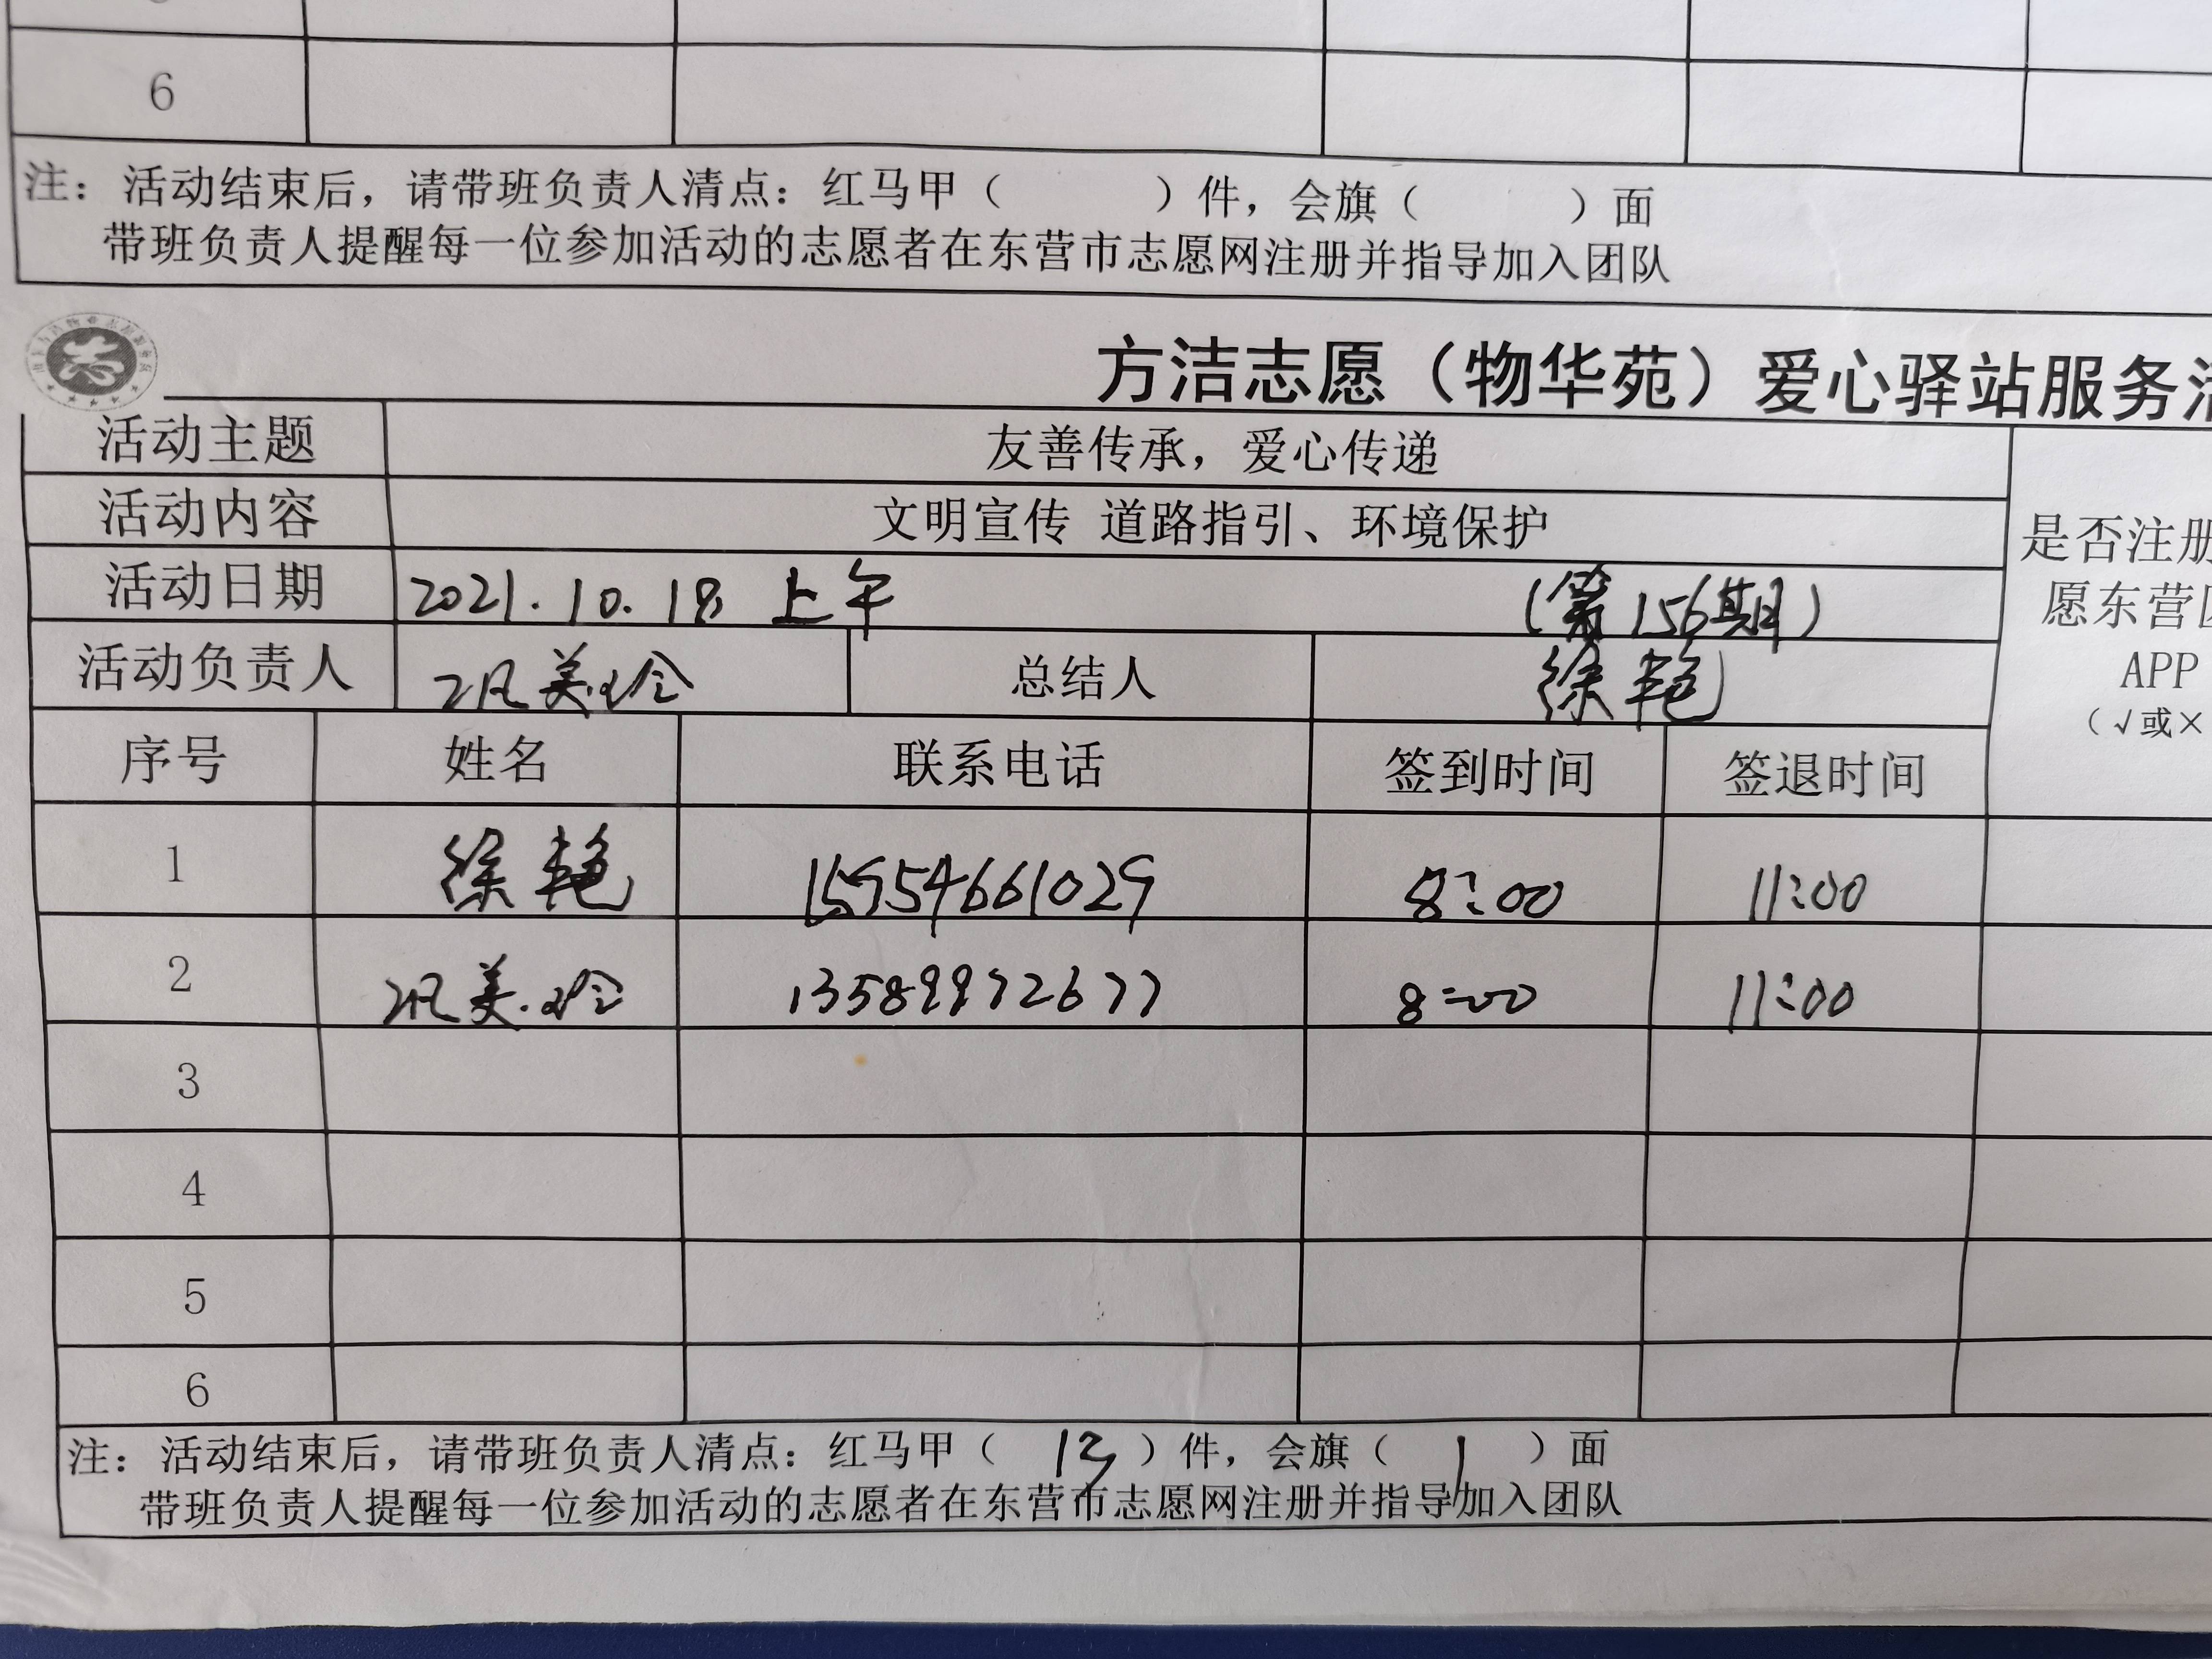 6
注：活动结束后，请带班负责人清点：红马甲（ ）件，会旗（ ）面
带班负责人提醒每一位参加活动的志愿者在东营市志愿网注册并指导加入团队
志
方洁志愿（物华苑）爱心驿站服务
活动主题 友善传承，爱心传递
活动内容 文明宣传 道路指引、环境保护
是否注册
活动日期 2021.10.18 上午 （第156期）
愿东营
活动负责人 美玲 总结人 徐艳
APP
（√或×
序号 姓名 联系电话 签到时间 签退时间
1 徐艳 15954661029 8:00 11:00
2 美玲 8:00 11:00
3
4
5
6
注：活动结束后，请带班负责人清点：红马甲（ 13 ）件，会旗（ 1 ）面
带班负责人提醒每一位参加活动的志愿者在东营市志愿网注册并指导加入团队